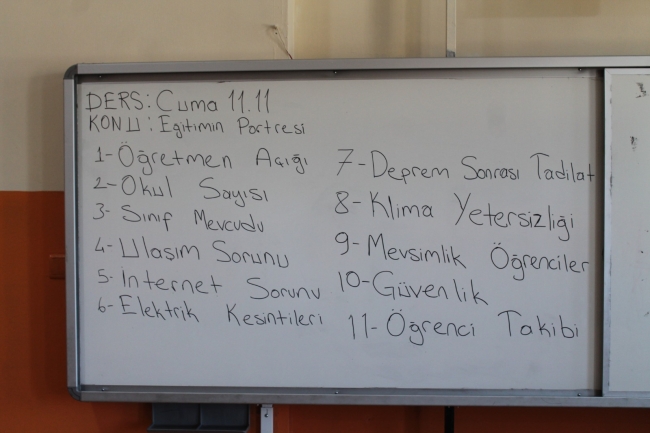 DERS: Cuma 11.11
KONU: Eğitimin Portresi
1-Öğretmen Açığı
2-Okul Sayısı
3- Sınıf Mevcudu
4- Ulaşım Sorunu
5- İnternet Sorunu
6- Elektrik Kesintileri
7-Deprem Sonrası Tadilat
8-Klima Yetersizliği
9-Mevsimlik Öğrenciler
10-Güvenlik
11-Öğrenci Takibi